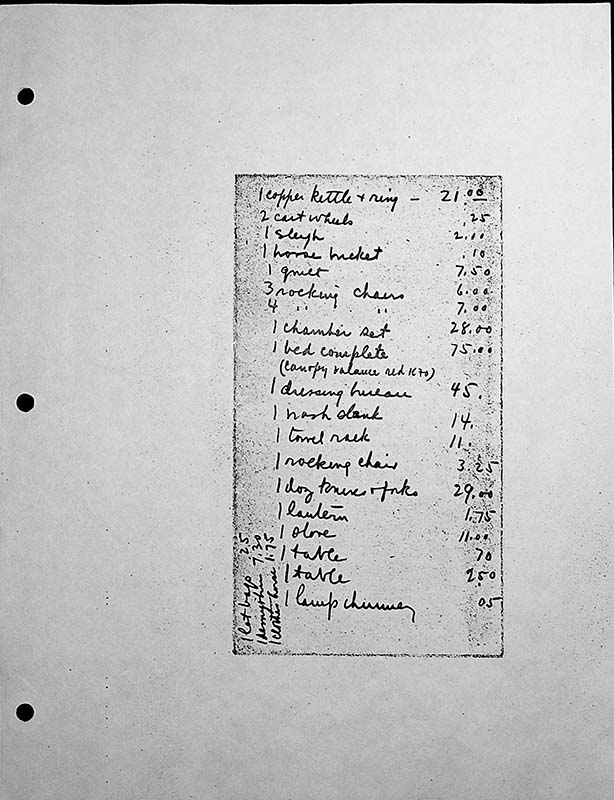 1 copper kettle + ring – 21.00
2 cart wheels .25
1 sleigh 2.00
1 horse bucket .10
1 quilt 7.50
3 rocking chairs 6.00
4 " " 7.00
1 chamber set 28.00
1 bed complete 75.00
(canopy valance red 1670)
1 dressing bureau 45.
1 wash 14.
1 towel rack 11.
1 rocking chair 3.25
1 doz knives + forks 29.00
1 lantern 1.75
1 11.00
1 table 70
1 table 250
1 lamp chimney 05
1 lot bags .25
1 7.30
1 clothes horse 1.75